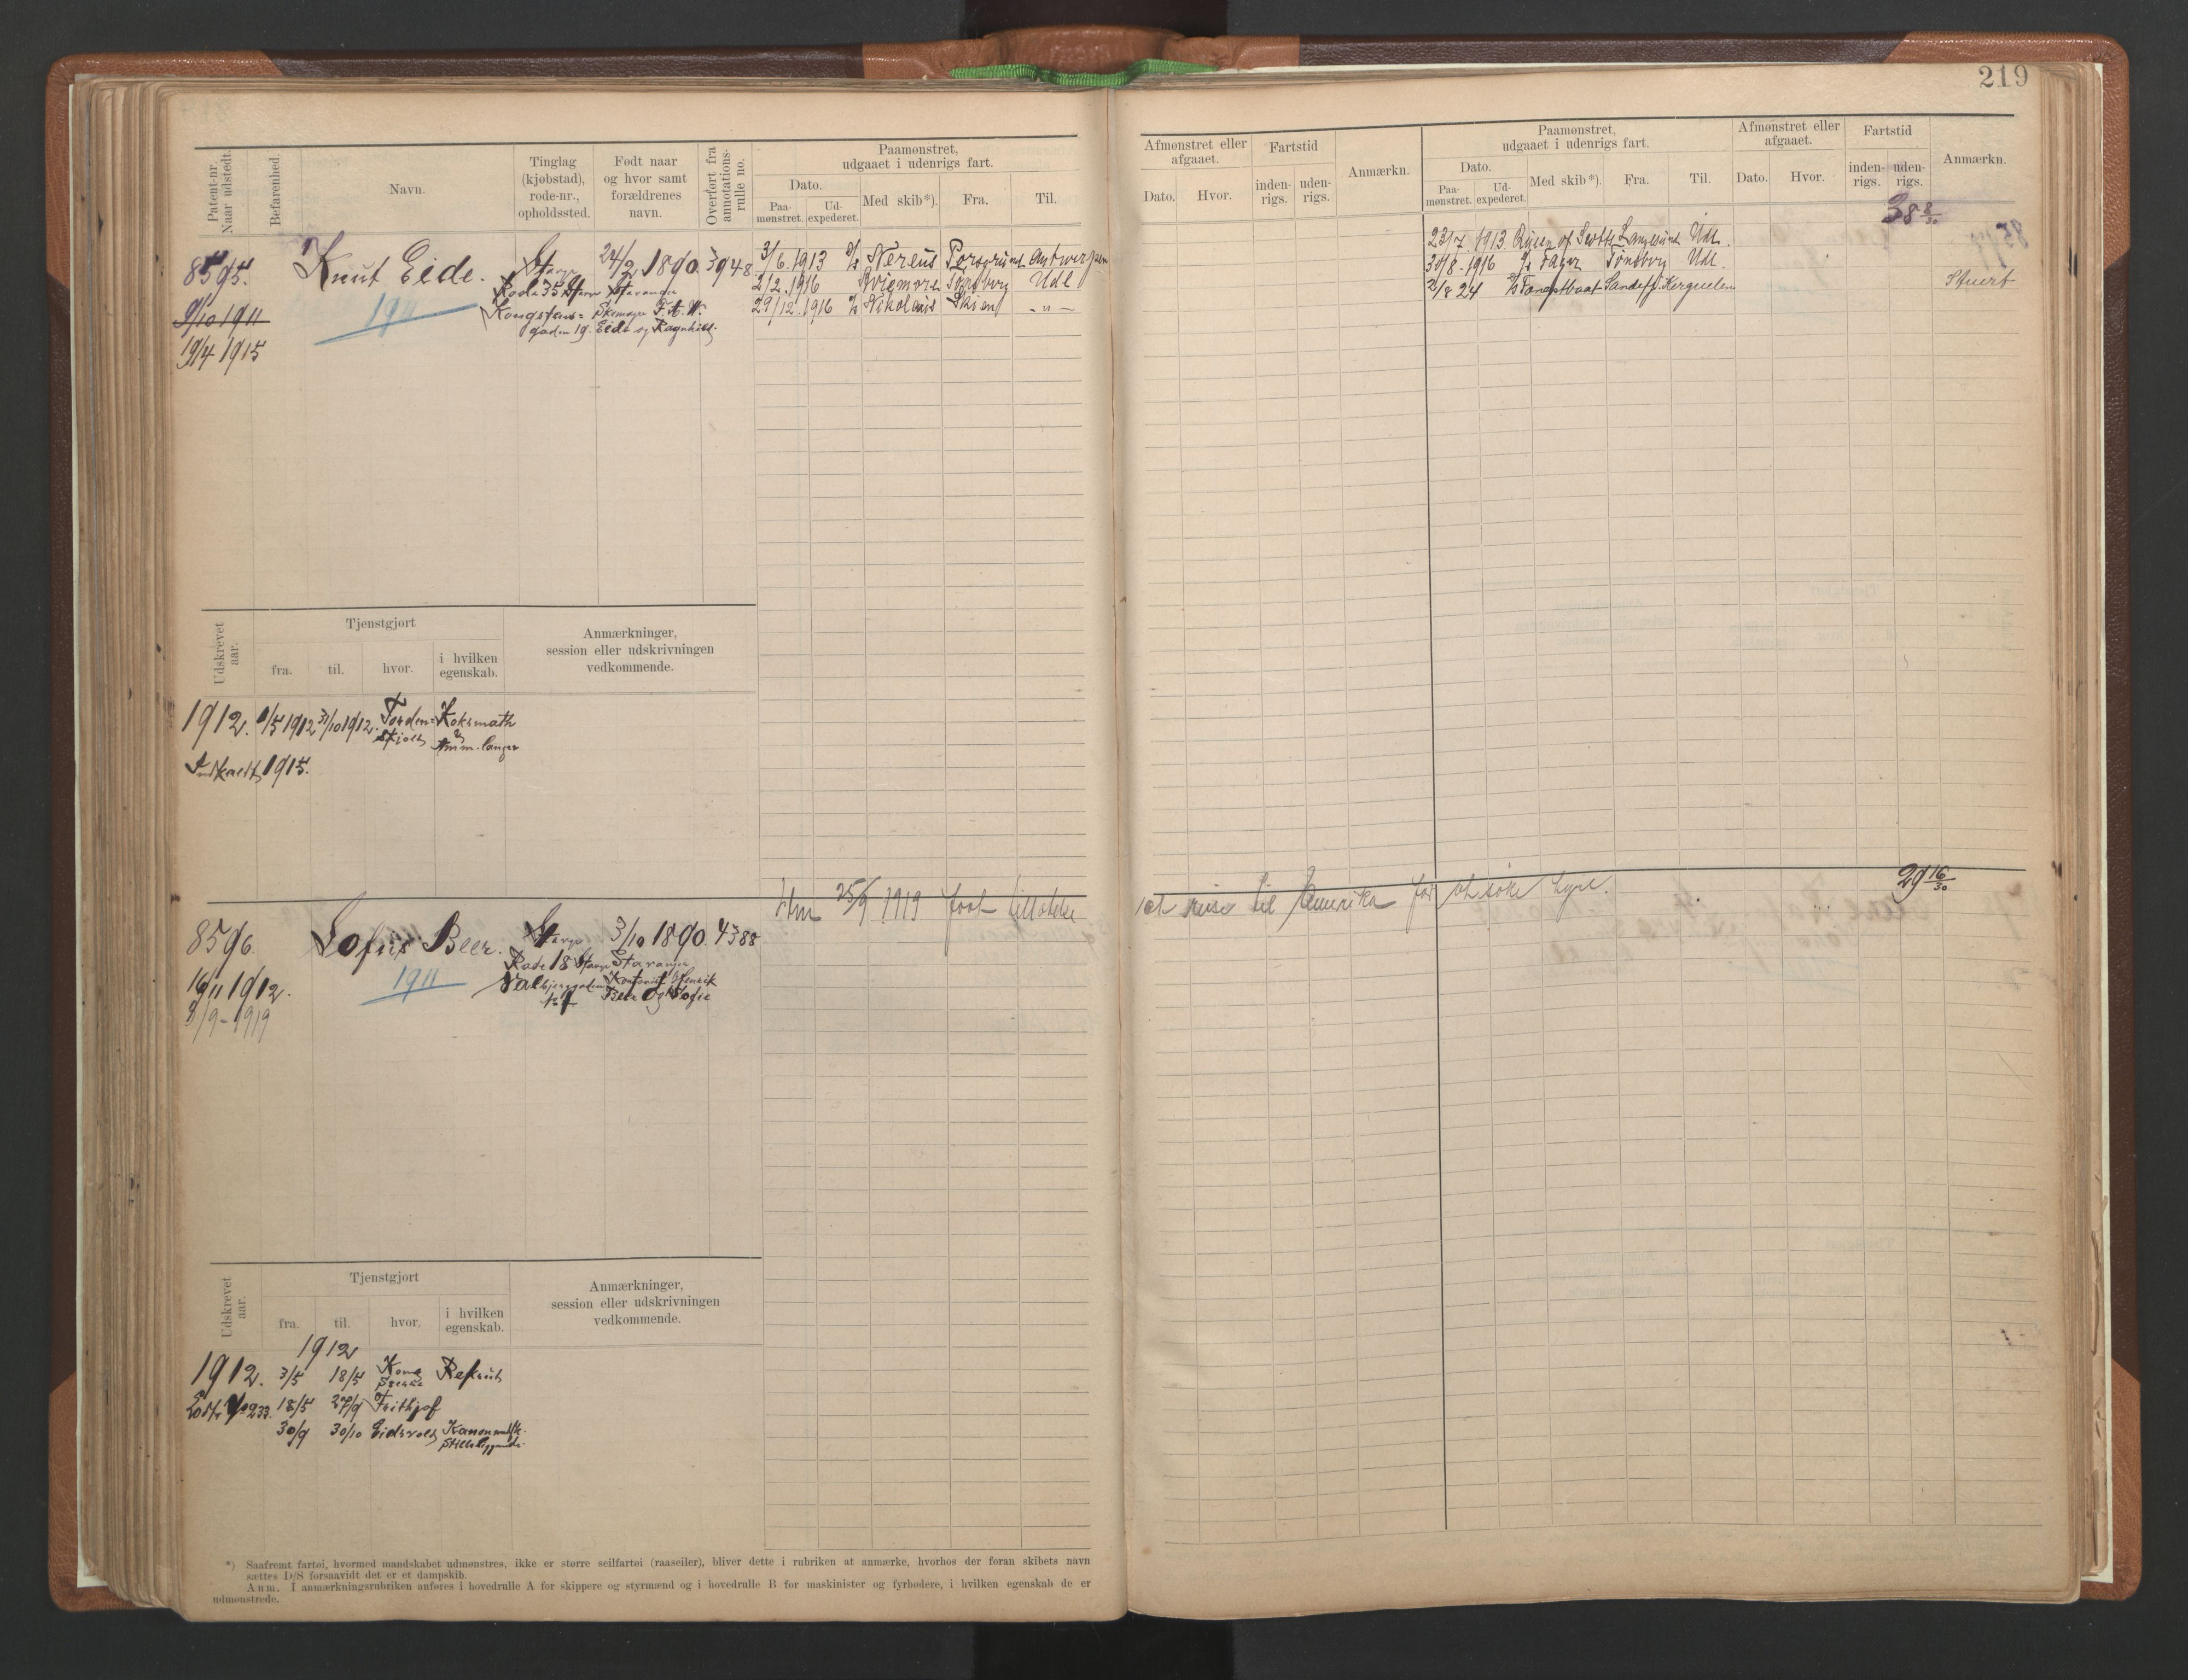 219
Patent-nr. Naar udstedt.
Befarenhed.
Navn.
Tinglag (kjøbstad), rode-nr., opholdssted.
Født naar og hvor samt forældrenes navn.
Overført fra annotations-rulle no.
Paamønstret, udgaaet i udenrigs fart.
Dato.
Paa-mønstret.
Ud-expederet.
Med skib*).
Fra.
Til.
Afmønstret eller afgaaet.
Dato.
Hvor.
Fartstid
inden-rigs.
uden-rigs.
Anmærkn.
Paamønstret, udgaaet i udenrigs fart.
Dato.
Paa-mønstret.
Ud-expederet.
Med skib*).
Fra.
Til.
Afmønstret eller afgaaet.
Dato.
Hvor.
Fartstid
inden-rigs.
uden-rigs.
Anmærkn.
38 8/30
8595. Knut Eide. Stavgr 24/2 1890. 3948
Rode 35 Stavgr Stavanger
Kongsgaards- Skomager
gaden 19. Eide og Ragnhild.
9/10 1911
19/4 1915
1911
3/6. 1913 Nereus Porsgrund Antwerpen
2/2. 1916 Tönsberg Udl
29/12. 1916 Nikolaus Skien - " -
23/7. 1913 Queen of Scotts Langesund Udl.
30/8. 1916 Fager Tönsberg Udl.
2/8 24 Sandefj. Kerguelen
Stuert
Udskrevet aar.
Tjenstgjort
fra.
til.
hvor.
i hvilken egenskab.
Anmærkninger, session eller udskrivningen vedkommende.
1912. 1/5 1912 31/10 1912. Torden- Koksmath
skjold
Indkaldt 1915.
29 16/30
25/9 1919 faat tilladelse
at reise til Amerika for at søke hyre.
8596. Beer. Stavgr 3/10 1890. 4388
Rode 18 Stavgr Stavanger
Henrik
Beer og Sofie
16/11 1912.
8/9 - 1919
1911
Udskrevet aar.
Tjenstgjort
fra.
til.
hvor.
i hvilken egenskab.
Anmærkninger, session eller udskrivningen vedkommende.
1912
1912. 3/5 18/5 Rekrut
Lodtr No 233. 18/5 27/9 Frithjof
30/9 30/10 Eidsvold
*) Saafremt fartøi, hvormed mandskabet udmønstres, ikke er større seilfartøi (raaseiler), bliver dette i rubriken at anmærke, hvorhos der foran skibets navn
sættes D/S forsaavidt det er et dampskib.
Anm. I anmærkningsrubriken anføres i hovedrulle A for skippere og styrmænd og i hovedrulle B for maskinister og fyrbødere, i hvilken egenskab de er
udmønstrede.